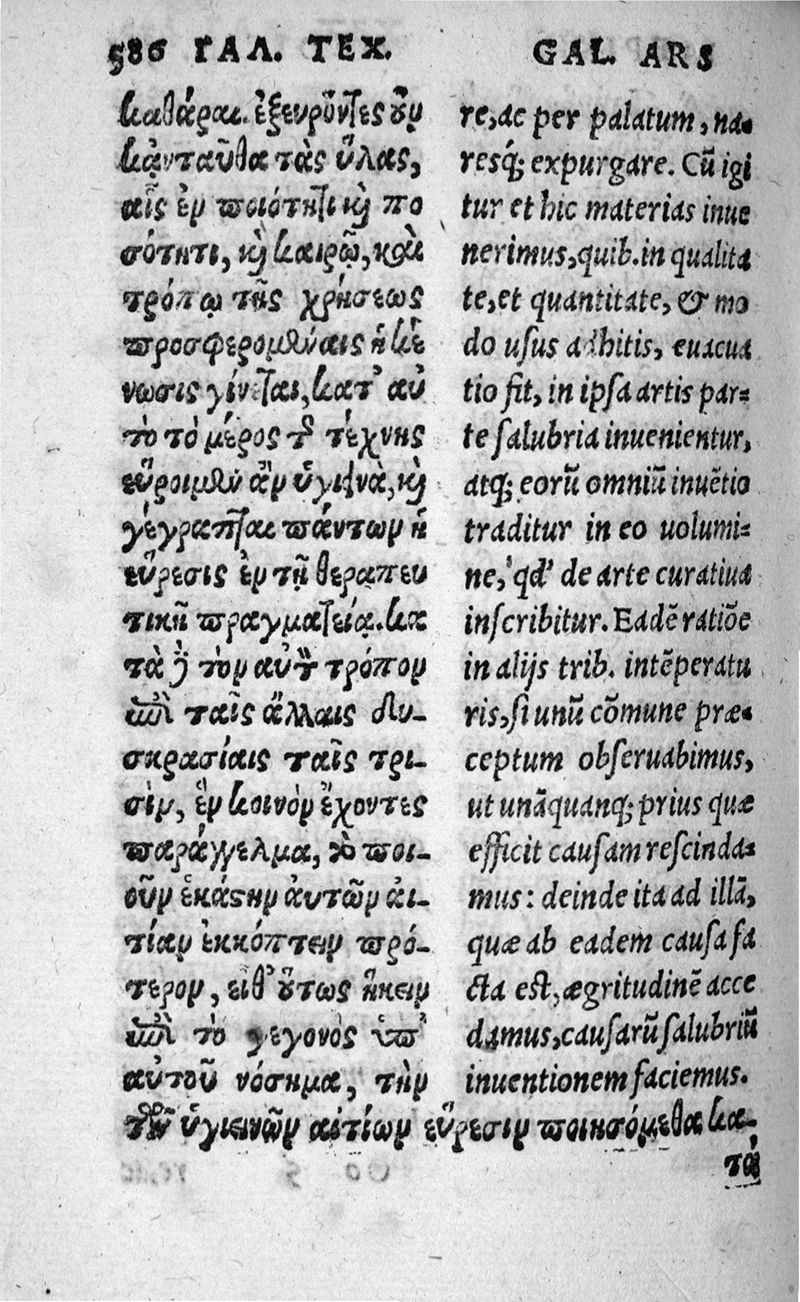 586 ΓΑΛ. ΤΕΧ.
καθάραι. ἐξευρόντες οὖν
κἀνταῦθα τὰς ὕλας,
αἷς ἐν ποιότητι καὶ πο
σότητι, καὶ καιρῷ, καὶ
τρόπῳ τῆς χρήσεως
προσφερομέναις ἡ κέ
νωσις γίνεται, κατ' αὐ
τὸ τὸ μέρος τῆς τέχνης
εὕροιμεν ἂν ὑγιεινὰ, καὶ
γέγραπται πάντων ἡ
εὕρεσις ἐν τῇ θεραπευ
τικῇ πραγματείᾳ. κα
τὰ δὲ τὸν αὐτὸν τρόπον
ἐπὶ ταῖς ἄλλαις δυ-
σκρασίαις ταῖς τρι-
σὶν, ἓν κοινὸν ἔχοντες
παράγγελμα, τὸ ποι-
οῦν ἑκάστην αὐτῶν αἰ-
τίαν ἐκκόπτειν πρό-
τερον, εἶθ' οὕτως ἥκειν
ἐπὶ τὸ γεγονὸς ὑπ'
αὐτοῦ νόσημα, τὴν
τῶν ὑγιεινῶν αἰτίων εὕρεσιν ποιησόμεθα κα-
τὰ
GAL. ARS
re, ac per palatum, na-
resq; expurgare. Cũ igi
tur et hic materias inue
nerimus, quib. in qualita
te, et quantitate, & mo
do usus adhibitis, euacua
tio fit, in ipsa artis par-
te salubria inuenientur,
atq; eorũ omniũ inuẽtio
traditur in eo uolumi-
ne, qd' de arte curatiua
inscribitur. Eadẽ ratiõe
in alijs trib. intẽperatu
ris, si unũ cõmune præ-
ceptum obseruabimus,
ut unãquanq; prius quæ
efficit causam rescinda-
mus: deinde ita ad illã,
quæ ab eadem causa fa
cta est, ægritudinẽ acce
damus, causarũ salubriũ
inuentionem faciemus.